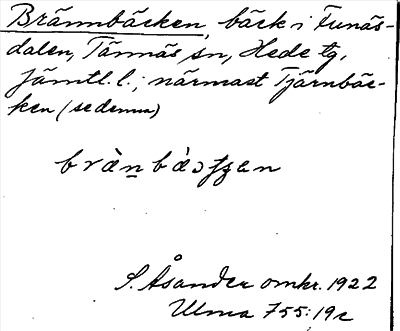 Brännbäcken, bäck i Funäs-
dalen, Tännäs sn, Hede tg,
Jämtl. l.; närmast Tjärnbäc-
ken (se denna)
S. Åsander omkr. 1922
Ulma 755:19c